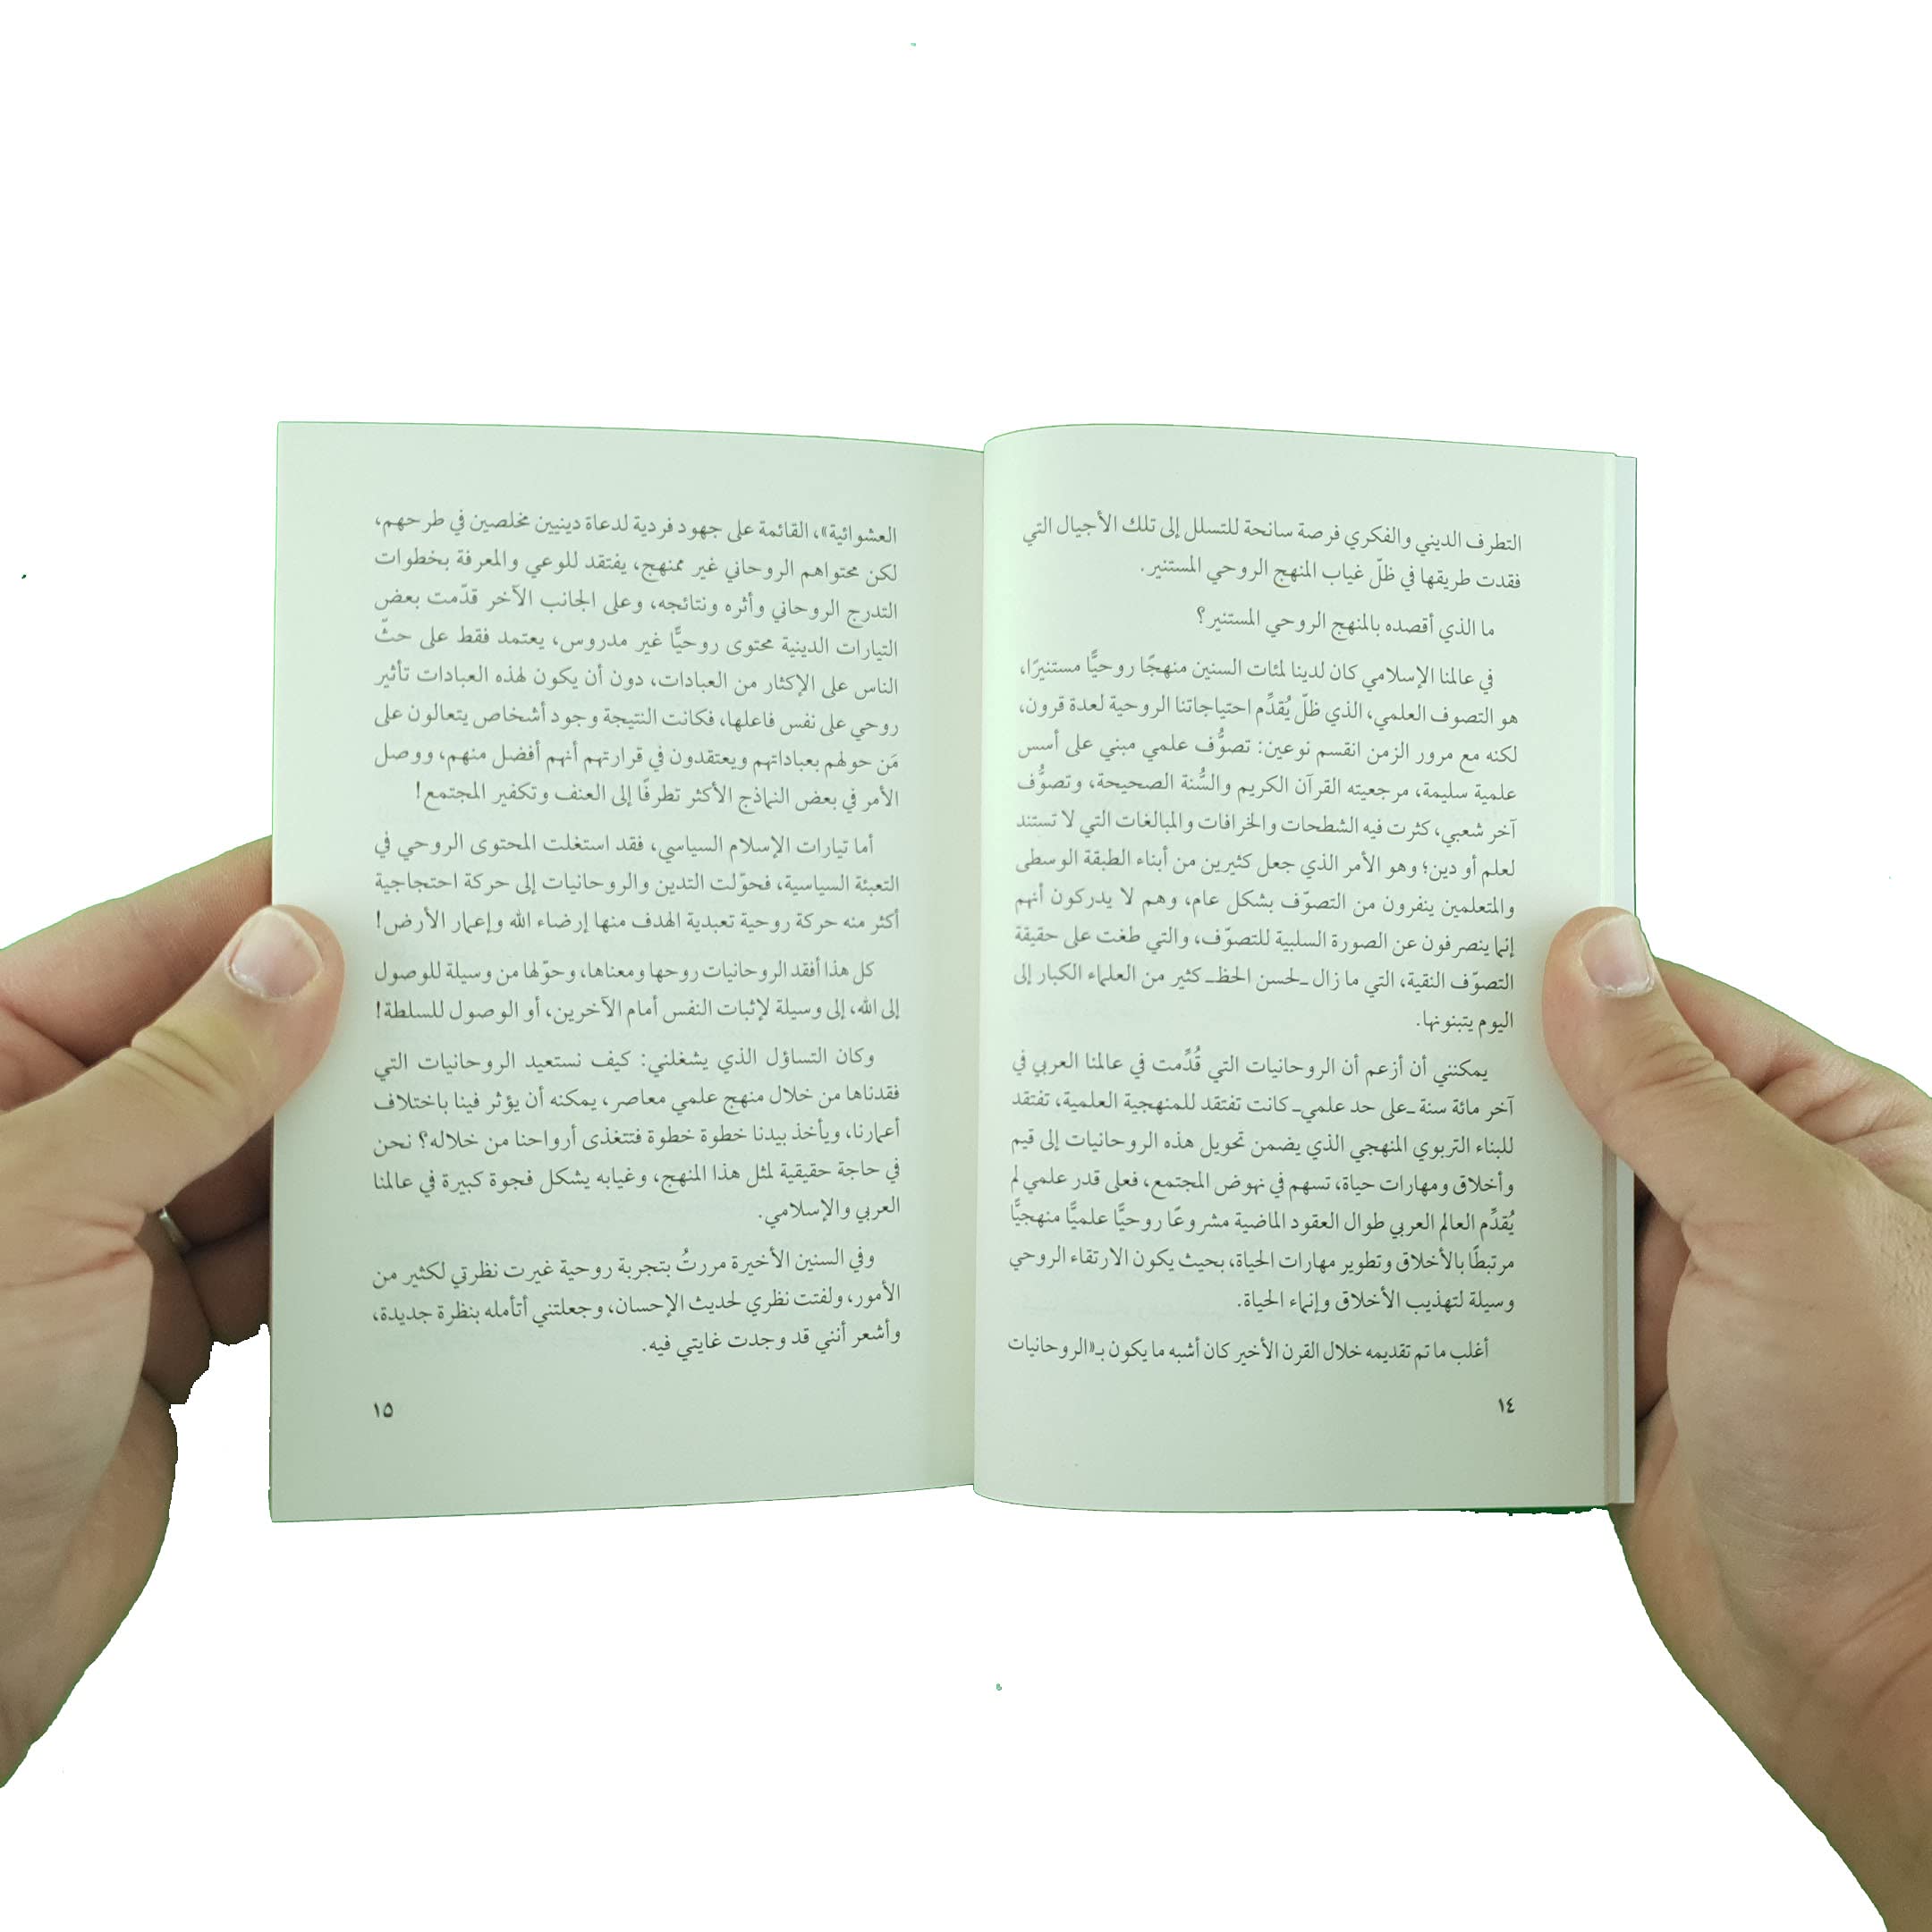 التطرف الديني والفكري فرصة سانحة للتسلل إلى تلك الأجيال التي
فقدت طريقها في ظلّ غياب المنهج الروحي المستنير.
ما الذي أقصده بالمنهج الروحي المستنير؟
في عالمنا الإسلامي كان لدينا لمئات السنين منهجًا روحيًّا مستنيرًا،
هو التصوف العلمي، الذي ظلّ يُقدِّم احتياجاتنا الروحية لعدة قرون،
لكنه مع مرور الزمن انقسم نوعين: تصوُّف علمي مبني على أسس
علمية سليمة، مرجعيته القرآن الكريم والسُّنة الصحيحة، وتصوُّف
آخر شعبي، كثرت فيه الشطحات والخرافات والمبالغات التي لا تستند
لعلم أو دين؛ وهو الأمر الذي جعل كثيرين من أبناء الطبقة الوسطى
والمتعلمين ينفرون من التصوّف بشكل عام، وهم لا يدركون أنهم
إنما ينصرفون عن الصورة السلبية للتصوّف، والتي طغت على حقيقة
التصوّف النقية، التي ما زال ـلحسن الحظـ كثير من العلماء الكبار إلى
اليوم يتبنونها.
يمكنني أن أزعم أن الروحانيات التي قُدِّمت في عالمنا العربي في
آخر مائة سنة ـعلى حد علميـ كانت تفتقد للمنهجية العلمية، تفتقد
للبناء التربوي المنهجي الذي يضمن تحويل هذه الروحانيات إلى قيم
وأخلاق ومهارات حياة، تسهم في نهوض المجتمع، فعلى قدر علمي لم
يُقدِّم العالم العربي طوال العقود الماضية مشروعًا روحيًّا علميًّا منهجيًّا
مرتبطًا بالأخلاق وتطوير مهارات الحياة، بحيث يكون الارتقاء الروحي
وسيلة لتهذيب الأخلاق وإنماء الحياة.
أغلب ما تم تقديمه خلال القرن الأخير كان أشبه ما يكون بـ«الروحانيات
١٤
العشوائية»، القائمة على جهود فردية لدعاة دينيين مخلصين في طرحهم،
لكن محتواهم الروحاني غير ممنهج، يفتقد للوعي والمعرفة بخطوات
التدرج الروحاني وأثره ونتائجه، وعلى الجانب الآخر قدّمت بعض
التيارات الدينية محتوى روحيًّا غير مدروس، يعتمد فقط على حثّ
الناس على الإكثار من العبادات، دون أن يكون لهذه العبادات تأثير
روحي على نفس فاعلها، فكانت النتيجة وجود أشخاص يتعالون على
مَن حولهم بعباداتهم ويعتقدون في قرارتهم أنهم أفضل منهم، ووصل
الأمر في بعض النماذج الأكثر تطرفًا إلى العنف وتكفير المجتمع!
أما تيارات الإسلام السياسي، فقد استغلت المحتوى الروحي في
التعبئة السياسية، فحوّلت التدين والروحانيات إلى حركة احتجاجية
أكثر منه حركة روحية تعبدية الهدف منها إرضاء الله وإعمار الأرض!
كل هذا أفقد الروحانيات روحها ومعناها، وحوّلها من وسيلة للوصول
إلى الله، إلى وسيلة لإثبات النفس أمام الآخرين، أو الوصول للسلطة!
وكان التساؤل الذي يشغلني: كيف نستعيد الروحانيات التي
فقدناها من خلال منهج علمي معاصر، يمكنه أن يؤثر فينا باختلاف
أعمارنا، ويأخذ بيدنا خطوة خطوة فتتغذى أرواحنا من خلاله؟ نحن
في حاجة حقيقية لمثل هذا المنهج، وغيابه يشكل فجوة كبيرة في عالمنا
العربي والإسلامي.
وفي السنين الأخيرة مررتُ بتجربة روحية غيرت نظرتي لكثير من
الأمور، ولفتت نظري لحديث الإحسان، وجعلتني أتأمله بنظرة جديدة،
وأشعر أنني قد وجدت غايتي فيه.
١٥